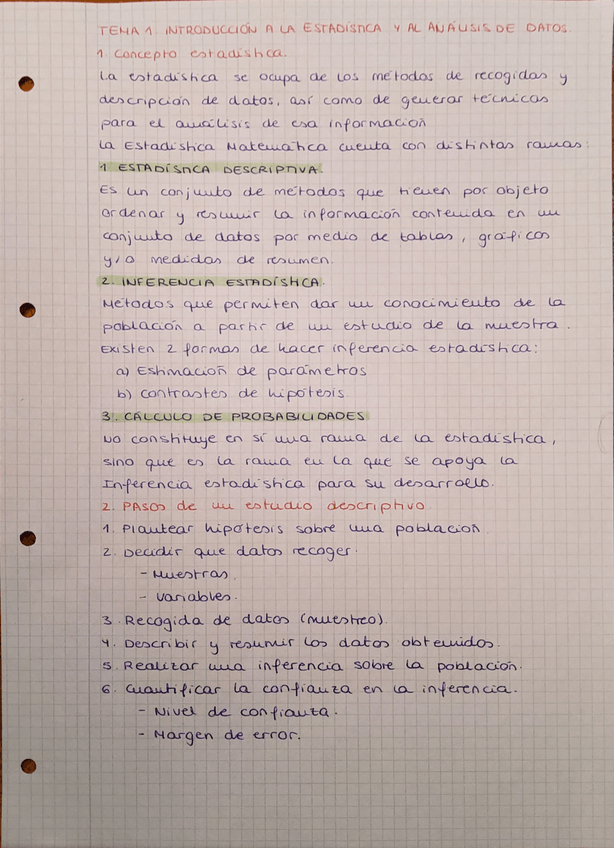 TEMA 1. INTRODUCCIÓN A LA ESTADÍSTICA Y AL ANÁLISIS DE DATOS.
1. Concepto estadística.
La estadística se ocupa de los métodos de recogidas y
descripción de datos, así como de generar técnicas
para el análisis de esa información
La Estadística Matemática cuenta con distintas ramas:
1 ESTADÍSTICA DESCRIPTIVA.
Es un conjunto de métodos que tienen por objeto
ordenar y resumir la información contenida en un
conjunto de datos por medio de tablas, gráficos
y/o medidas de resumen.
2. INFERENCIA ESTADÍSTICA.
Métodos que permiten dar un conocimiento de la
población a partir de un estudio de la muestra.
Existen 2 formas de hacer inferencia estadística:
a) Estimación de parámetros
b) contrastes de hipótesis
3. CÁLCULO DE PROBABILIDADES
No constituye en sí una rama de la estadística,
sino que es la rama en la que se apoya la
Inferencia estadística para su desarrollo.
2. PASOS de un estudio descriptivo
1. Plantear hipótesis sobre una población
2. Decidir que datos recoger.
- Muestras.
- Variables.
3. Recogida de datos (muestreo).
4. Describir y resumir los datos obtenidos.
5. Realizar una inferencia sobre la población.
6. Cuantificar la confianza en la inferencia.
- Nivel de confianza.
- Margen de error.